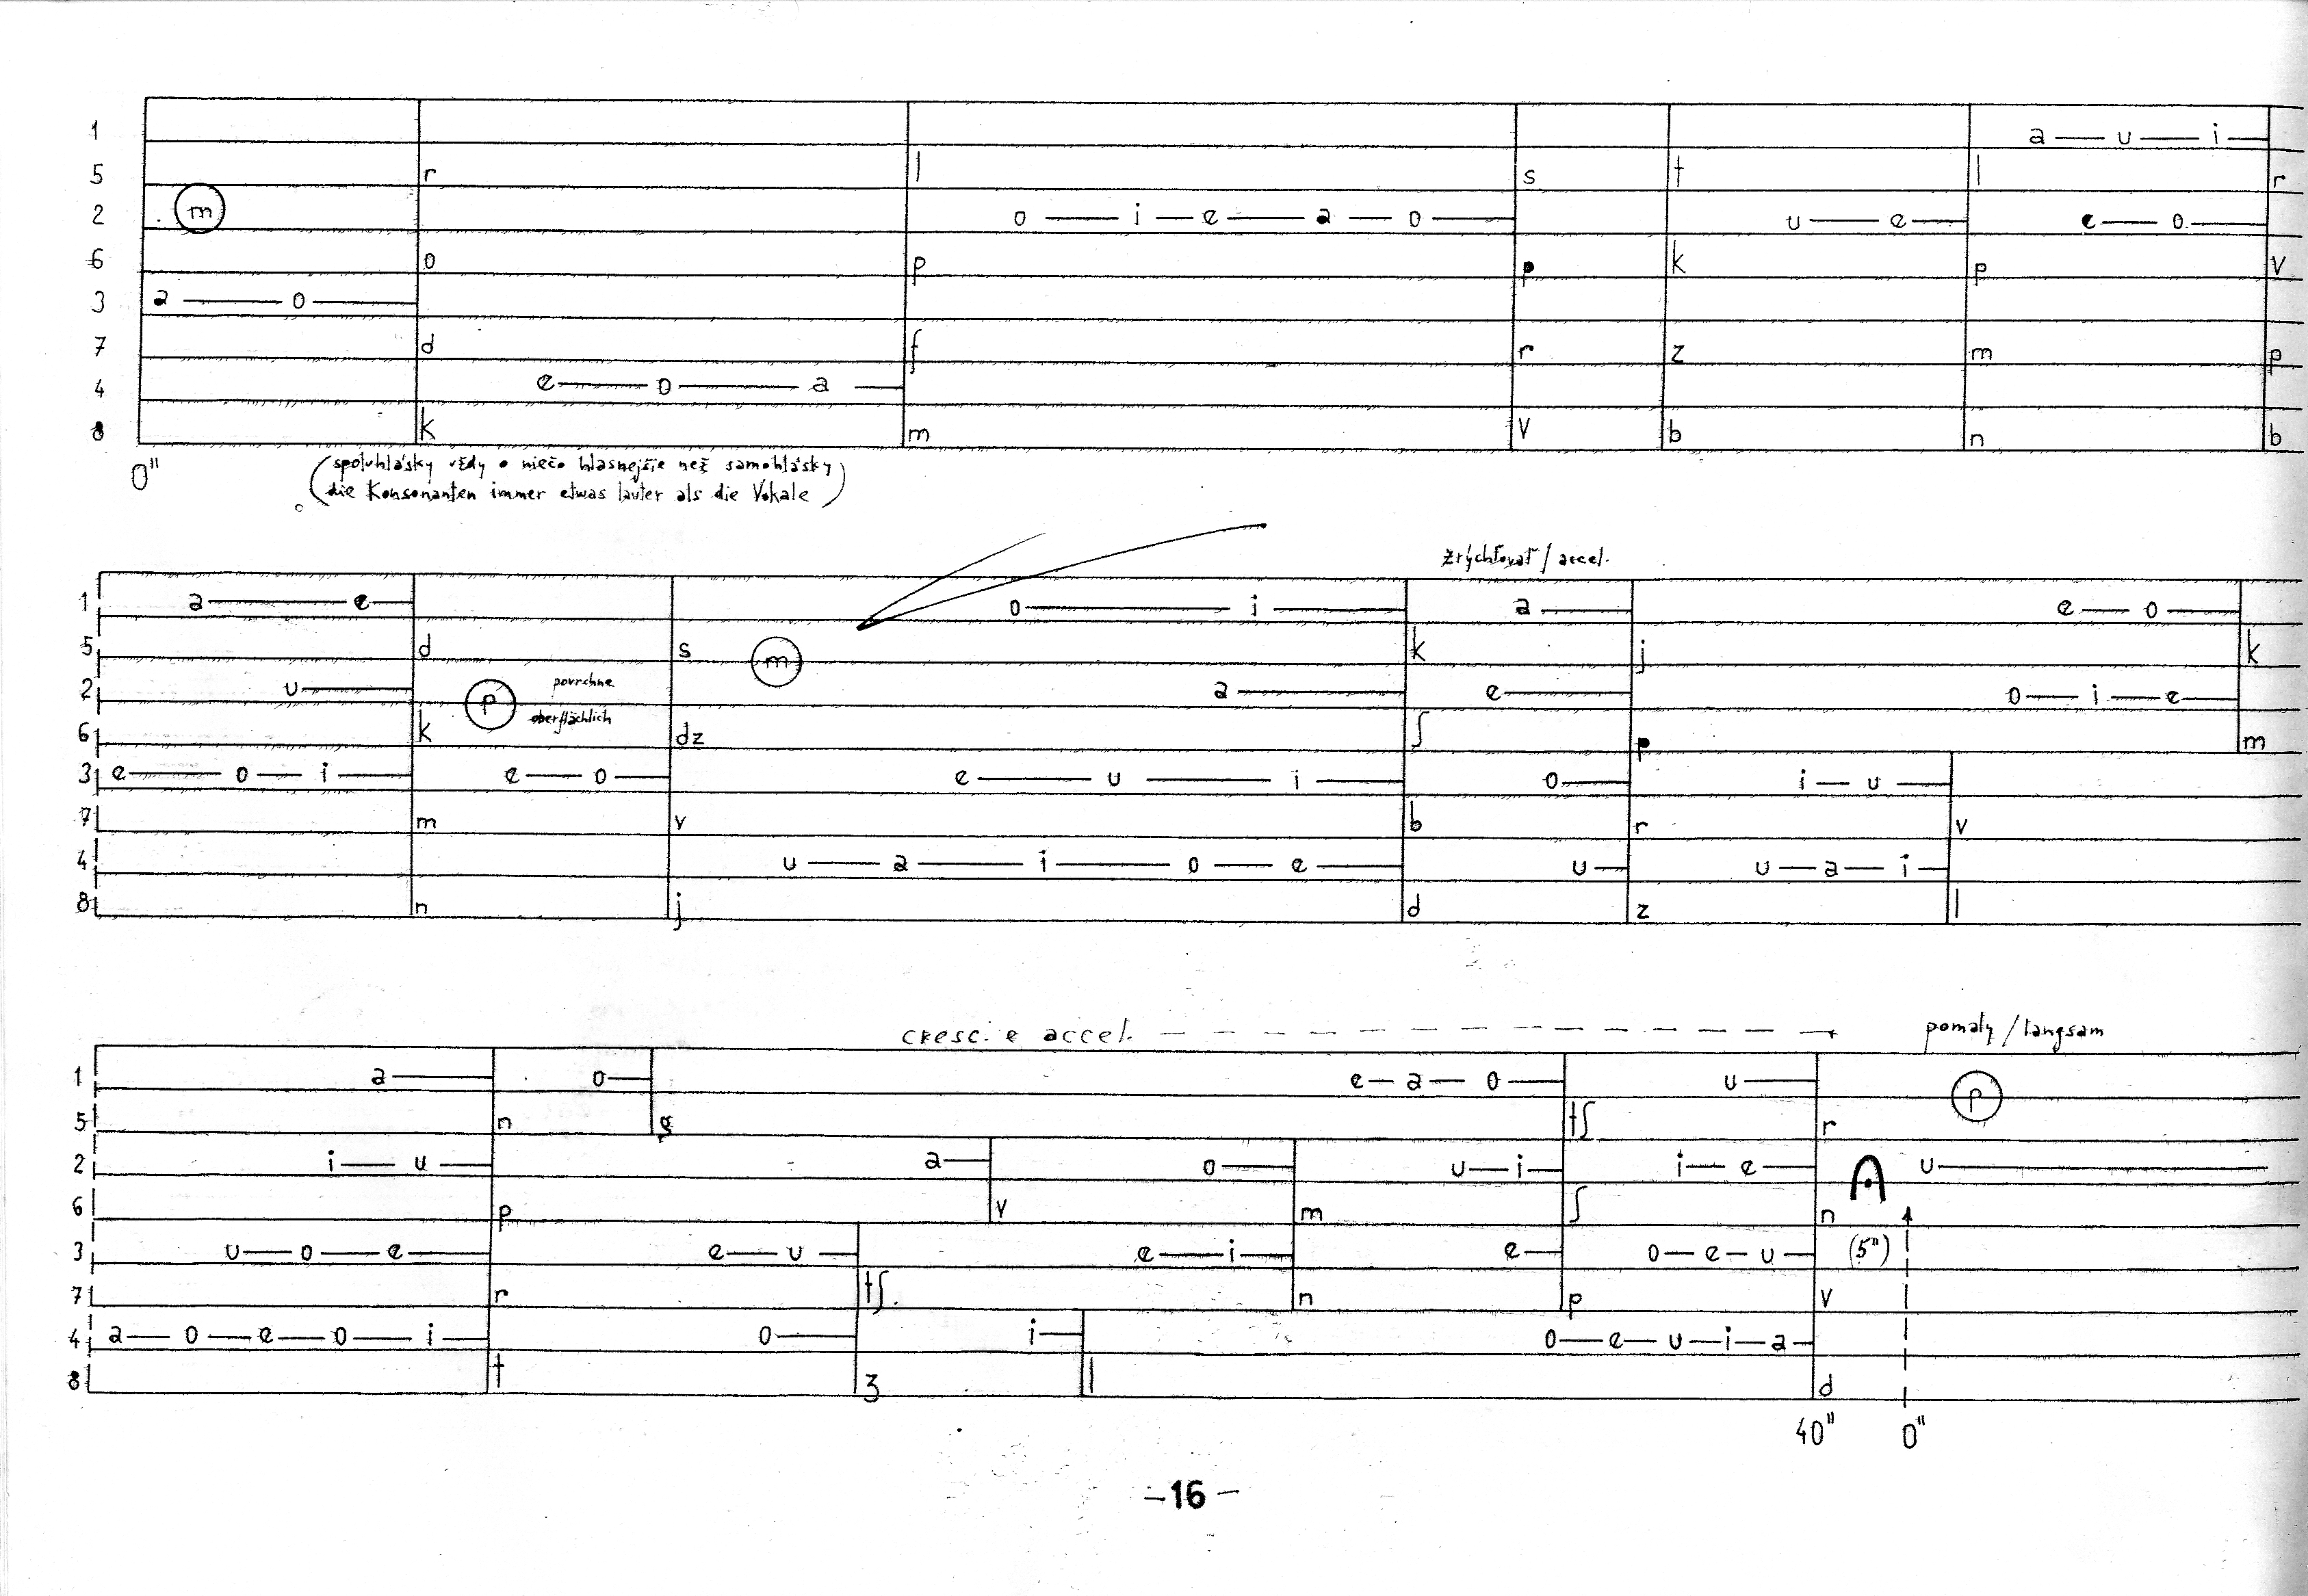 1 a — u — i —
5 r l s t l r
2 m o — i — e — a — o — u — e — e — o —
6 o p p k p v
3 a — o —
7 d f r z m p
4 e — o — a —
8 k m v b n b
0"
(spoluhlásky vždy o niečo hlasnejšie než samohlásky)
(die Konsonanten immer etwas lauter als die Vokale)
zrýchľovať / accel.
1 a — e — o — i — a — e — o —
5 d s m k j k
2 u — p povrchne a — e — o — i — e —
oberflächlich
6 k dz ʃ p m
3 e — o — i — e — o — e — u — i — o — i — u —
7 m v b r v
4 u — a — i — o — e — u — u — a — i —
8 n j d z l
cresc. e accel. — — — — — — — — — — — — pomaly / langsam
1 a — o — e — a — o — u — p
5 n g tʃ r
2 i — u — a — o — u — i — i — e — u —
6 p v m ʃ n
3 u — o — e — e — u — e — i — e — o — e — u — (5")
7 r tʃ n p v
4 a — o — e — o — i — o — i — o — e — u — i — a —
8 t ʒ l d
40" 0"
–16–